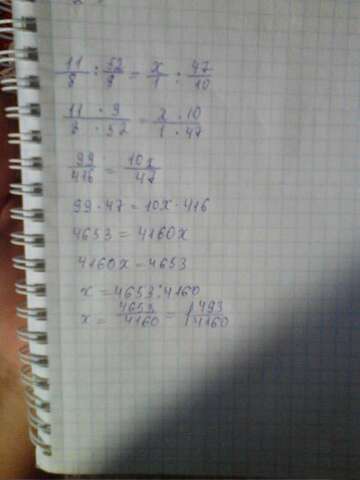 11/8 : 52/9 = x/1 : 47/10
11 · 9/8 · 52 = x · 10/1 · 47
99/416 = 10x/47
99 · 47 = 10x · 416
4653 = 4160x
4160x = 4653
x = 4653 : 4160
x = 4653/4160 = 1 493/4160